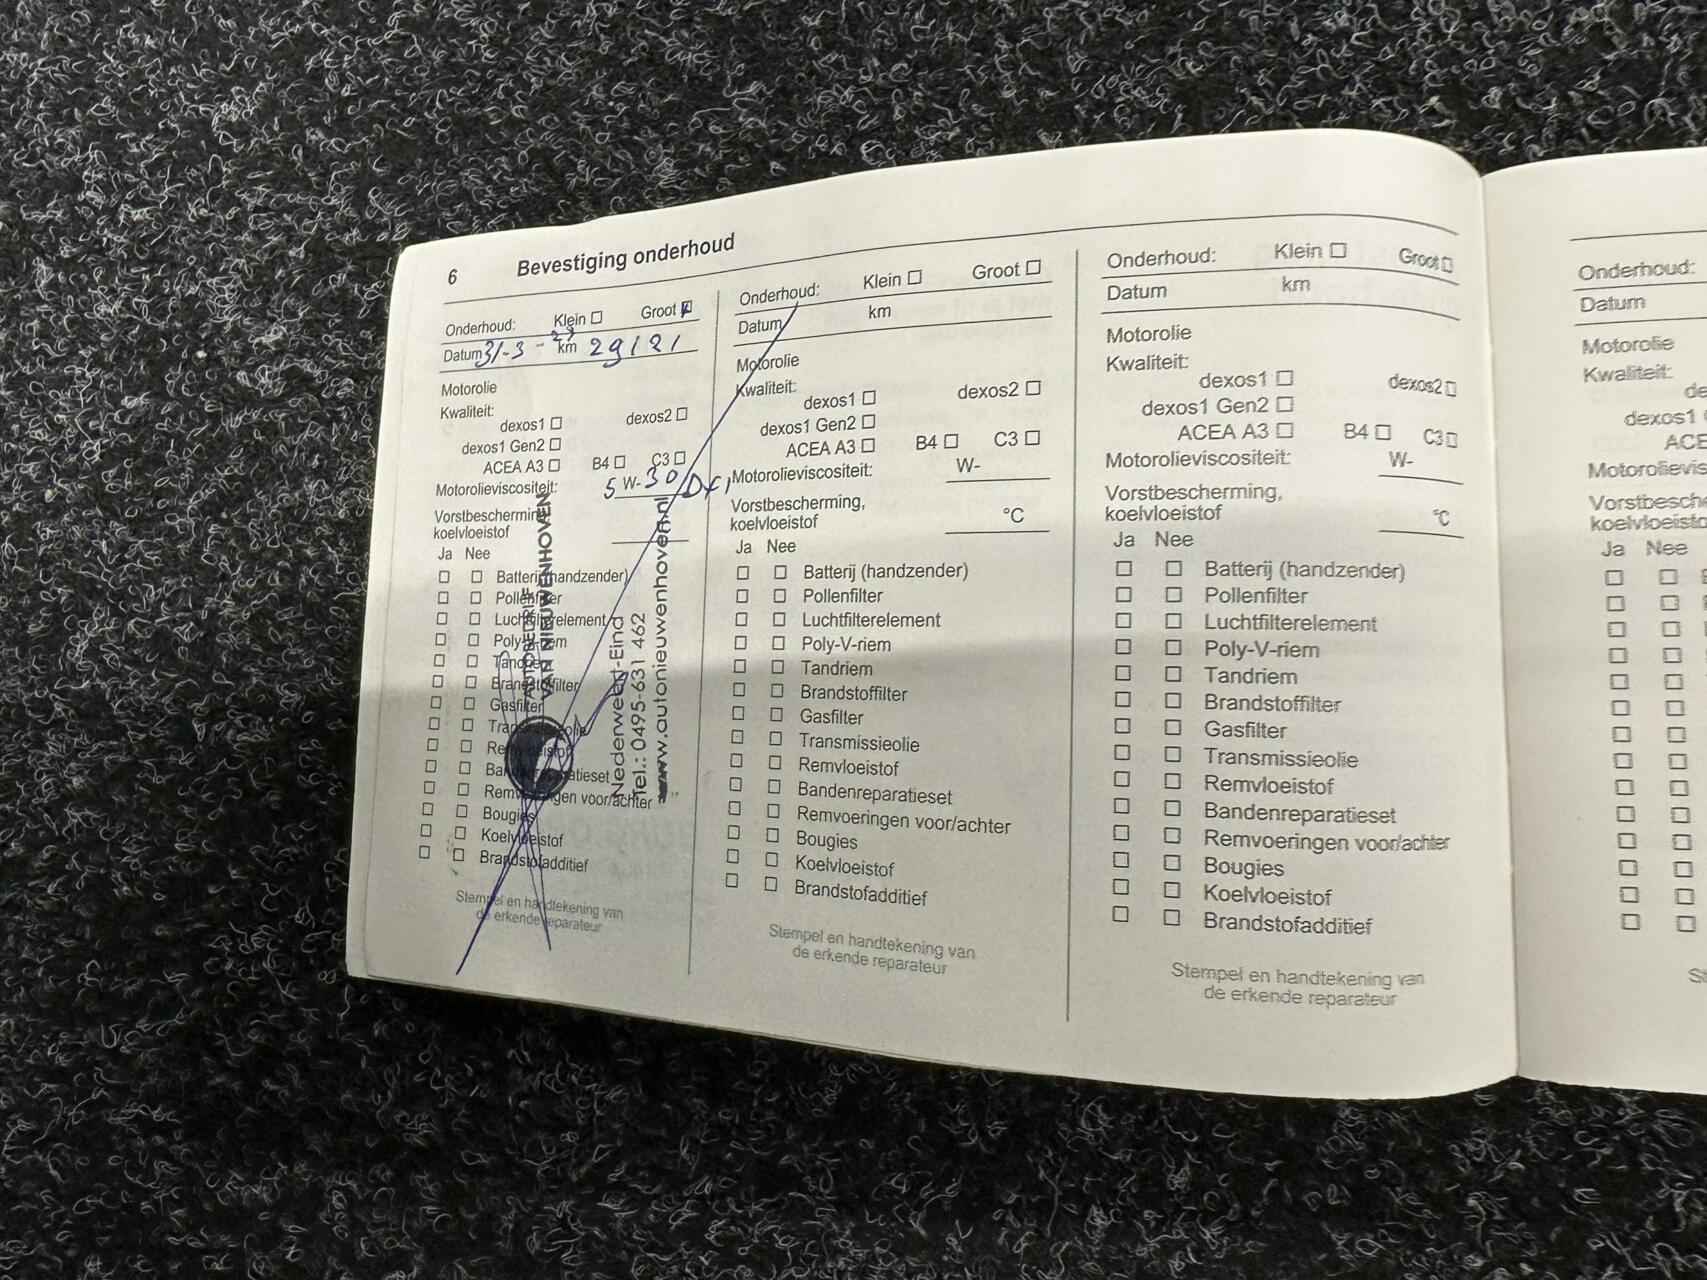 6 Bevestiging onderhoud
Onderhoud: Klein Groot
Datum 31-3-23 km 29121
Motorolie
Kwaliteit:
dexos1 dexos2
dexos1 Gen2
ACEA A3 B4 C3
Motorolieviscositeit: 5 W-30
Vorstbescherming,
koelvloeistof
Ja Nee
Batterij (handzender)
Pollenfilter
Luchtfilterelement
Poly-V-riem
Tandriem
Brandstoffilter
Gasfilter
Transmissieolie
Remvloeistof
Bandenreparatieset
Remvoeringen voor/achter
Bougies
Koelvloeistof
Brandstofadditief
Stempel en handtekening van
de erkende reparateur
AUTOBEDRIJF
VAN NIEUWENHOVEN
Nederweert-Eind
Tel.: 0495-631 462
www.autonieuwenhoven.nl
Onderhoud: Klein Groot
Datum km
Motorolie
Kwaliteit:
dexos1 dexos2
dexos1 Gen2
ACEA A3 B4 C3
Motorolieviscositeit: W-
Vorstbescherming,
koelvloeistof °C
Ja Nee
Batterij (handzender)
Pollenfilter
Luchtfilterelement
Poly-V-riem
Tandriem
Brandstoffilter
Gasfilter
Transmissieolie
Remvloeistof
Bandenreparatieset
Remvoeringen voor/achter
Bougies
Koelvloeistof
Brandstofadditief
Stempel en handtekening van
de erkende reparateur
Onderhoud: Klein Groot
Datum km
Motorolie
Kwaliteit:
dexos1 dexos2
dexos1 Gen2
ACEA A3 B4 C3
Motorolieviscositeit: W-
Vorstbescherming,
koelvloeistof °C
Ja Nee
Batterij (handzender)
Pollenfilter
Luchtfilterelement
Poly-V-riem
Tandriem
Brandstoffilter
Gasfilter
Transmissieolie
Remvloeistof
Bandenreparatieset
Remvoeringen voor/achter
Bougies
Koelvloeistof
Brandstofadditief
Stempel en handtekening van
de erkende reparateur
Onderhoud:
Datum
Motorolie
Kwaliteit:
de
dexos1
ACE
Motorolievis
Vorstbesche
koelvloeisto
Ja Nee
St